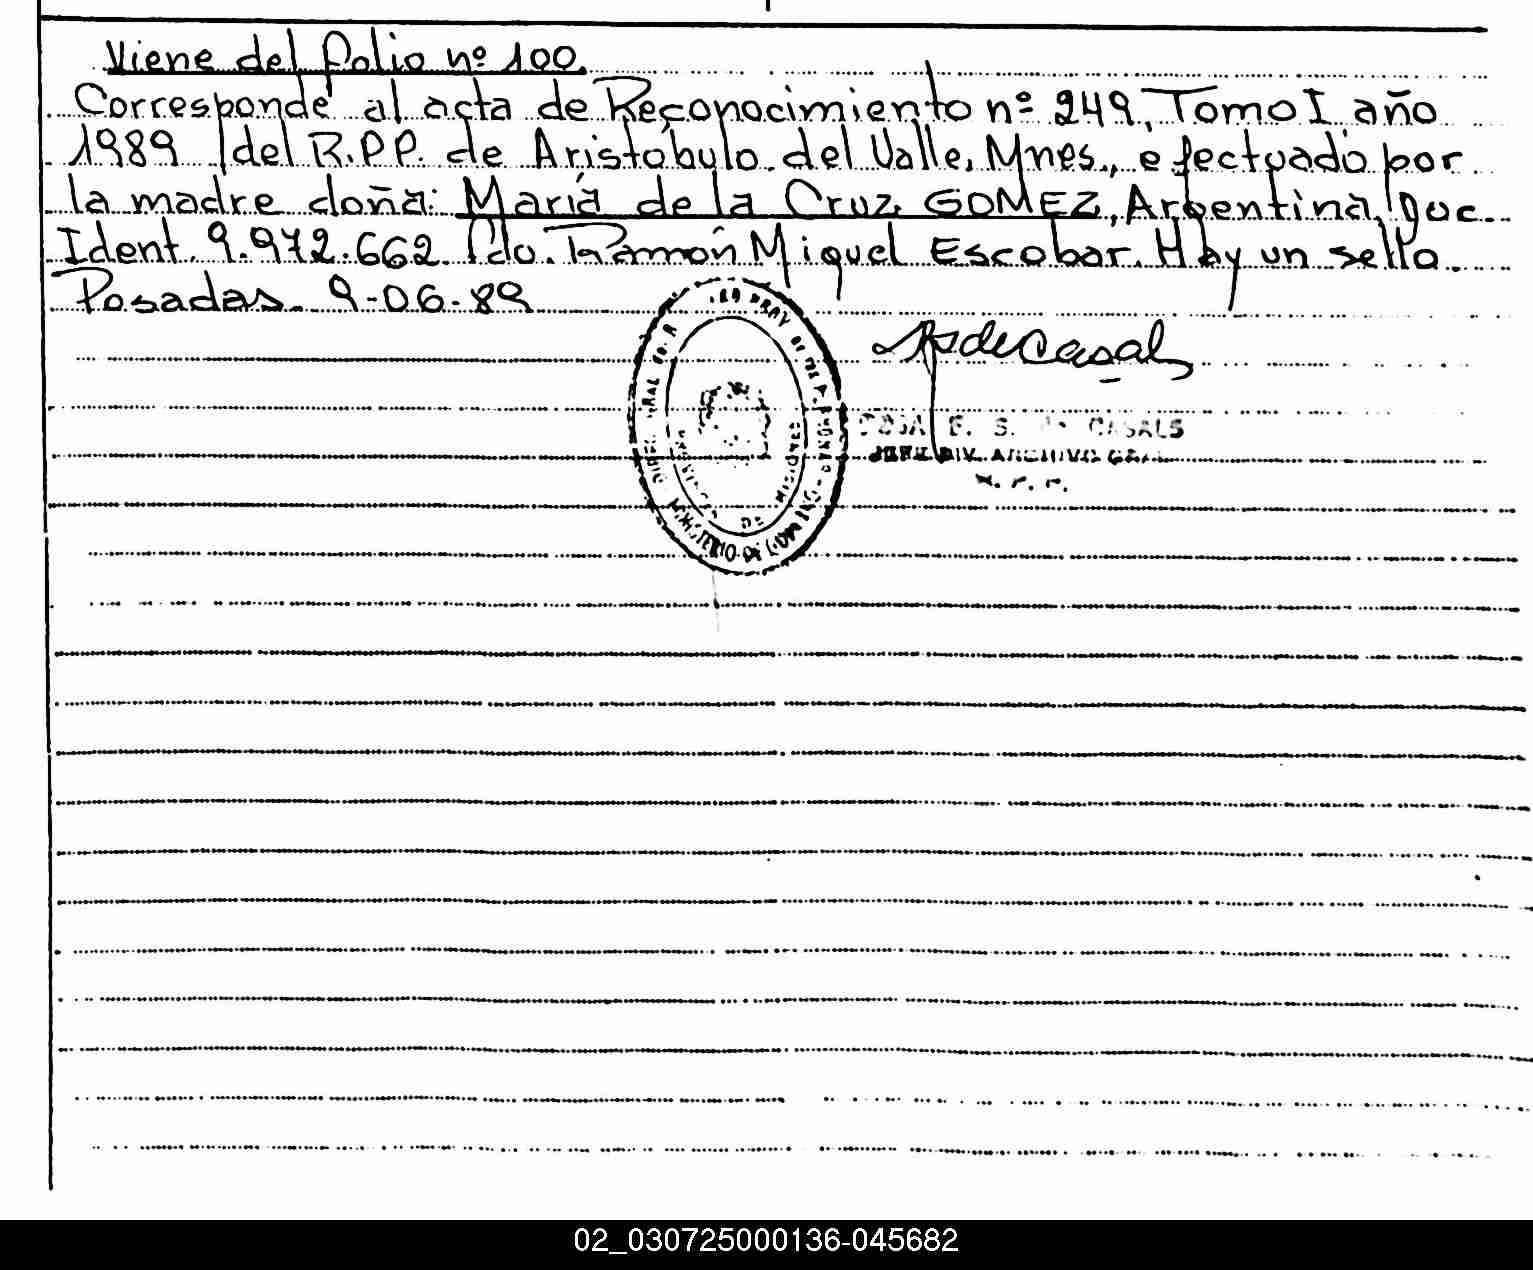 Viene del folio nº 100.
Corresponde al acta de Reconocimiento nº 249, Tomo I año
1989 del R.P.P. de Aristóbulo del Valle, Mnes., efectuado por
la madre doña: María de la Cruz GOMEZ, Argentina, Doc.
Ident. 9.972.662. Fdo. Ramón Miguel Escobar. Hay un sello.
Posadas. 9-06-89
E. S. de CASALS
JEFE DIV. ARCHIVO GRAL
R. P. P.
MINISTERIO DE GOBIERNO
DE MISIONES
02_030725000136-045682